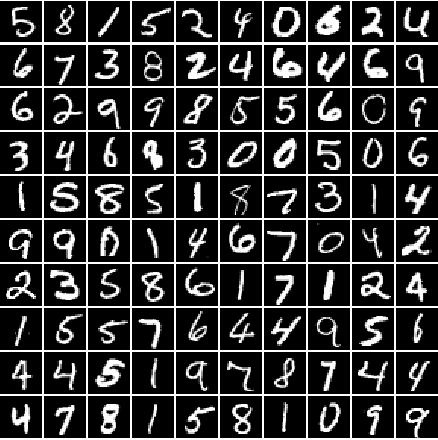 5 8 1 5 2 4 0 6 2 4
6 7 3 8 2 4 6 4 6 9
6 2 9 9 8 5 5 6 0 9
3 4 6 8 3 0 0 5 0 6
1 5 8 5 1 8 7 3 1 4
9 9 0 1 4 6 7 0 4 2
2 3 5 8 6 1 7 1 2 4
1 5 5 7 6 4 4 9 5 6
4 4 5 1 9 7 8 7 4 4
4 7 8 1 5 8 1 0 9 9